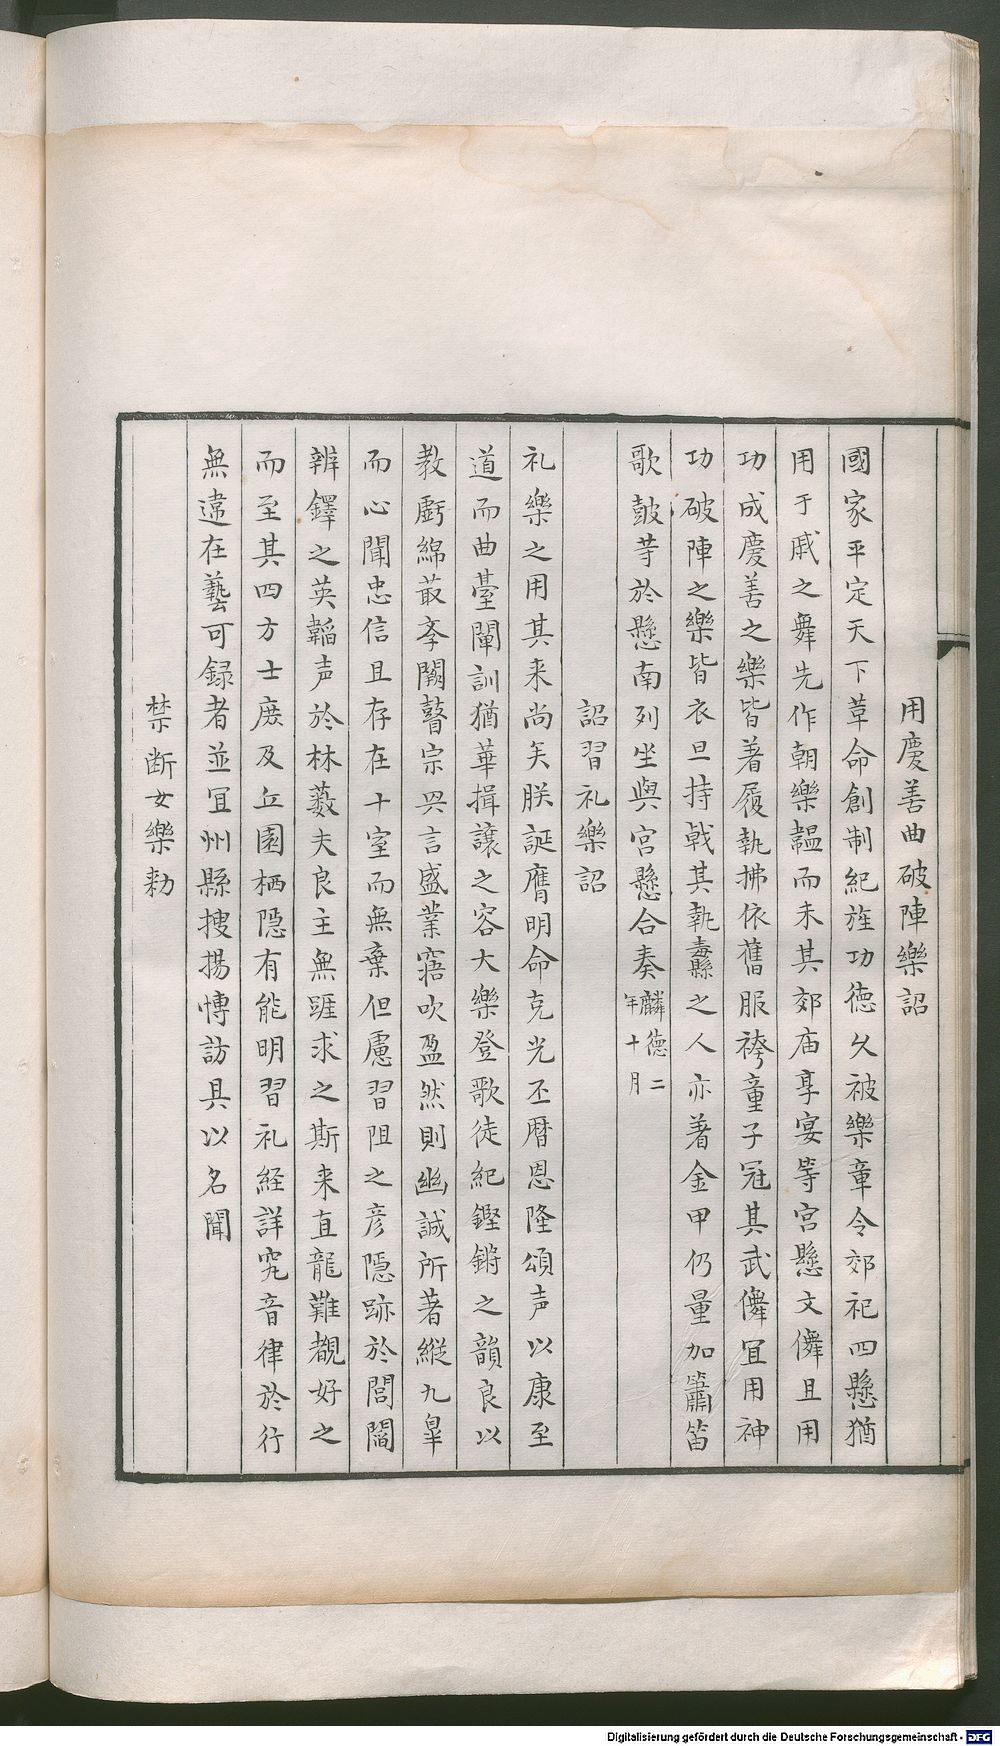 用慶善曲破陣樂詔
國家平定天下革命創制紀旌功德久被樂章今郊祀四懸猶
用干戚之舞先作朝樂韞而未其郊庙享宴等宮懸文儛且用
功成慶善之樂皆著履執拂依舊服袴童子冠其武儛冝用神
功破陣之樂皆衣旦持戟其執纛之人亦著金甲仍量加簫笛
歌鼓䓁於懸南列坐與宮懸合奏麟德二年十月
詔習礼樂詔
礼樂之用其来尚矣朕誕膺明命克光丕暦恩隆頌声以康至
道而曲臺闡訓猶華揖讓之容大樂登歌徒紀鏗鏘之韻良以
教虧綿蕞斈闕瞽宗興言盛業寤吹盈然則幽誠所著縦九臯
而心聞忠信且存在十室而無棄但慮習阻之彦隱跡於閭閻
辨鐸之英韜声於林薮夫良主無踁求之斯来直龍難覩好之
而至其四方士庶及丘園栖隠有能明習礼経詳究音律於行
無違在藝可録者並冝州縣捜揚博訪具以名聞
禁断女樂勑
Digitalisierung gefördert durch die Deutsche Forschungsgemeinschaft - DFG